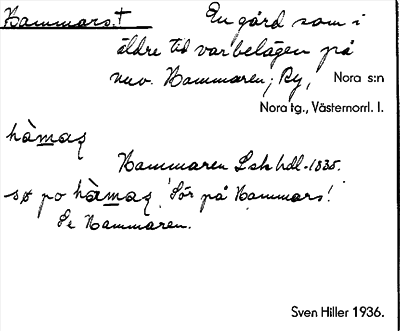 Hammars.† En gård som i
äldre tid var belägen på
nuv. Hammaren; Ry, Nora s:n
Nora tg., Västernorrl. l.
hàmaʂ
Hammaren Lsk hdl. 1835.
sø po hàmaʂ 'Sör på Hammars!'
Se Hammaren.
Sven Hiller 1936.